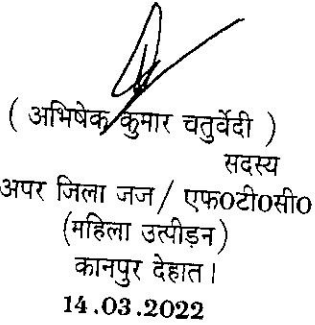 ( अभिषेक कुमार चतुर्वेदी )
सदस्य
अपर जिला जज/ एफ0टी0सी0
(महिला उत्पीड़न)
कानपुर देहात।
14.03.2022